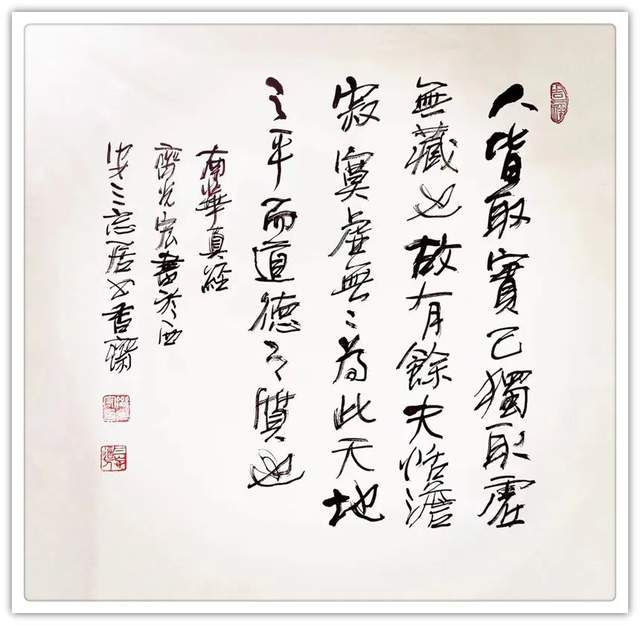 人皆取實己獨取虛
無藏也故有餘夫恬澹
寂寞虛無〻為此天地
之平而道德之質也
南華真經
齊光宏書於西
三忘居也香齋